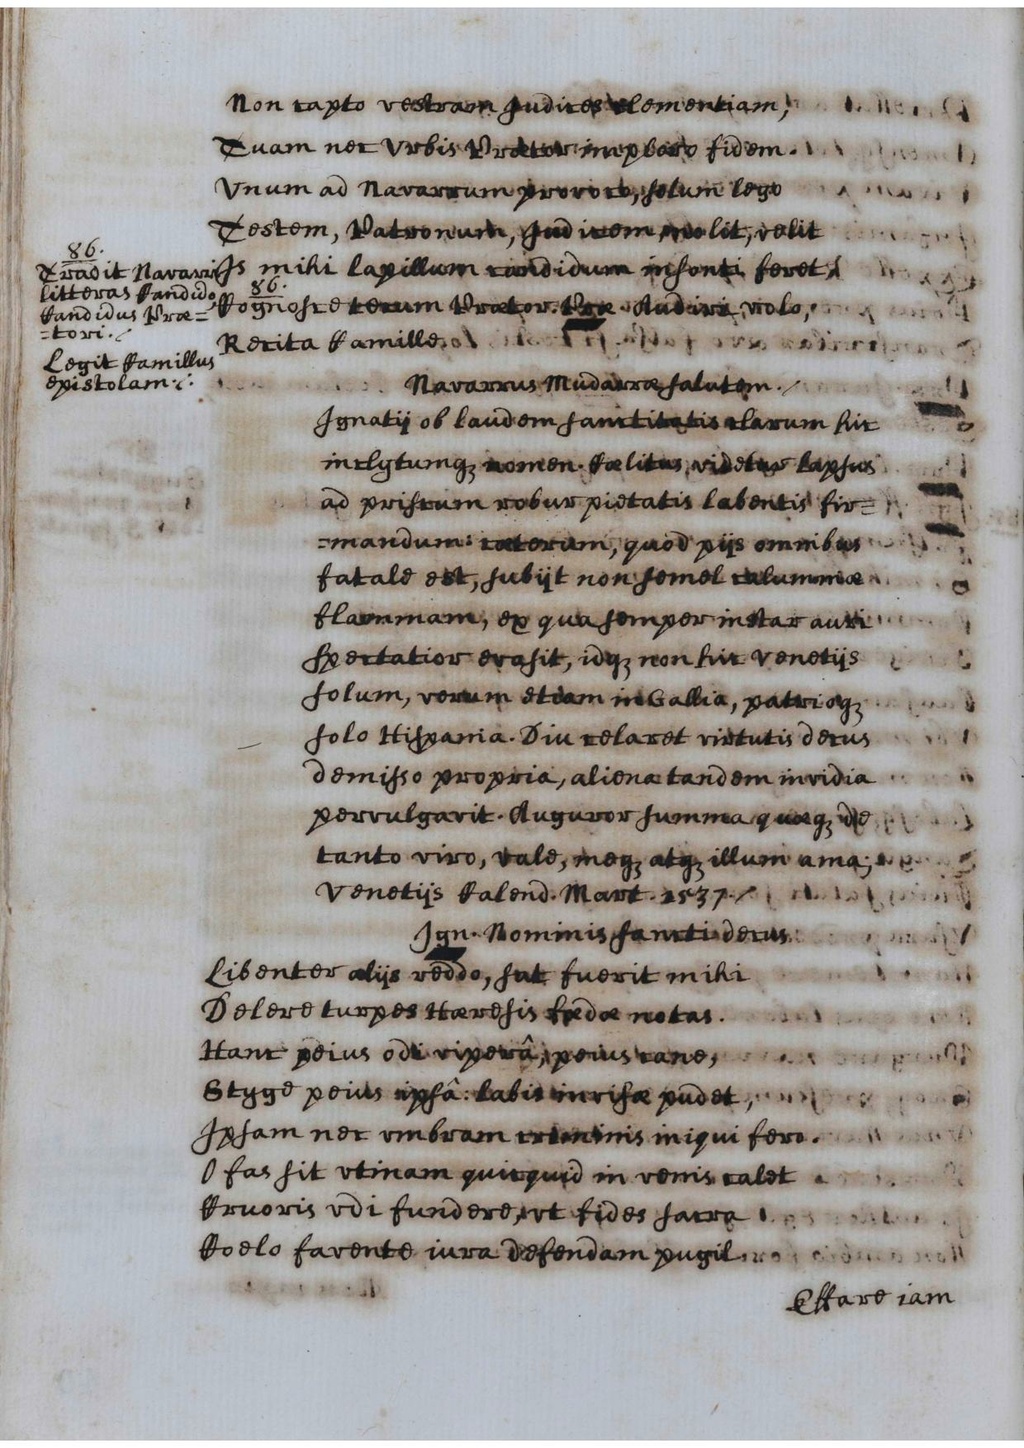 Non capto vestram Judices clementiam,
Quam nec Vrbis Prætor imploro fidem.
Vnum ad Navarrum provoco, solum lego
Testem, Patronum, Judicem, nolit, velit
Is mihi lapillum candidum insonti feret
86.
Tradit Navarri
litteras Candido
Candidus Præ=
=tori.
Legit Camillus
epistolam.
86.
Cognoscite Prætor. Præ. Audire volo,
Recita Camille.
Navarrus Mudarræ salutem.
Ignatij ob laudem sanctitatis clarum hic
inclytumq; nomen. Cœlitus videtur lapsus
ad priscum robur pietatis labentis fir=
=mandum: cæterum, quod pijs omnibus
fatale est, subijt non semel calumniæ
flammam, ex qua semper instar auri
spectatior evasit, idq; non hic Venetijs
solum, verum etiam in Gallia, patrioq;
solo Hispania. Diu celaret virtutis decus
demisso propria, aliena tandem invidia
pervulgavit. Auguror summa quæq; de
tanto viro, vale, meq; atq; illum ama;
Venetijs Calend. Mart. 1537.
Ign. Nominis sancti decus
Libenter alijs reddo, sat fuerit mihi
Delere turpes Hæresis fœdæ notas.
Hanc peius odi viperâ, peius cane,
Styge peius ipsâ: labis invisæ pudet,
Ipsam nec vmbram criminis iniqui fero.
O fas sit vtinam quicquid in venis calet
Cruoris vdi fundere, vt fides sacra
Coelo favente iura defendam pugil.
Effare iam